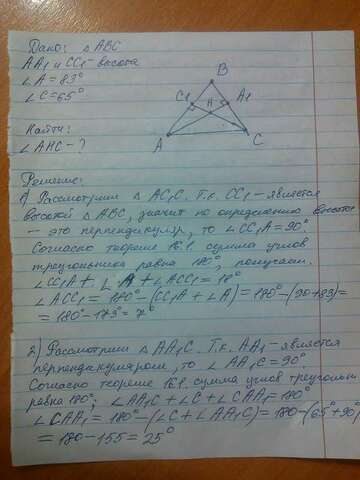 Дано: △ABC
AA1 и CC1 - высота
∠A = 83°
∠C = 65°
Найти:
∠AHC - ?
B
C1 H A1
A C
Решение:
1) Рассмотрим △ AC1C. Т.к. CC1 - является
высотой △ ABC, значит по определению высота
- это перпендикуляр, то ∠CC1A = 90°
Согласно теореме 16.1. сумма углов
треугольника равна 180°, получаем.
∠CC1A + ∠A + ∠ACC1 = 18°
∠ACC1 = 180° - (CC1A + ∠A) = 180° - (90 + 83) =
= 180° - 173° = 7°
2) Рассмотрим △ AA1C. Т.к. AA1 - является
перпендикуляром, то ∠AA1C = 90°.
Согласно теореме 16.1. сумма углов треугольн.
равна 180°; ∠AA1C + ∠C + ∠CAA1 = 180°
∠CAA1 = 180° - (∠C + ∠AA1C) = 180 - (65° + 90°)
= 180 - 155 = 25°